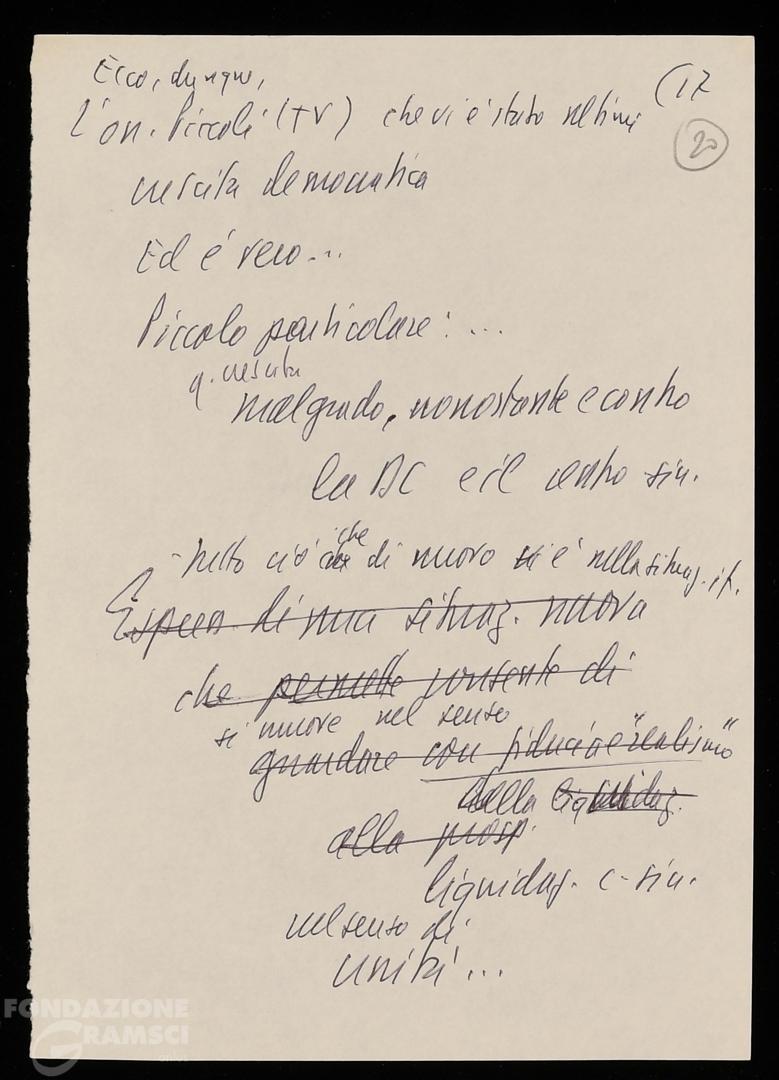 Ecco, dunque,
(17
20
L'on. Piccoli (TV) che vi è stata ultim.
crescita democratica
Ed è vero...
Piccolo particolare: ...
q. crescita
malgrado, nonostante e contro
la DC e il centro sin.
- tutto ciò che di nuovo vi è nella situaz. it.
di una situaz. nuova
che permette consente di
si muove nel senso
guardare con fiducia e "realismo"
della liquidaz.
alla prosp.
liquidaz. c-sin.
nel senso di
unità...
FONDAZIONE
GRAMSCI
onlus